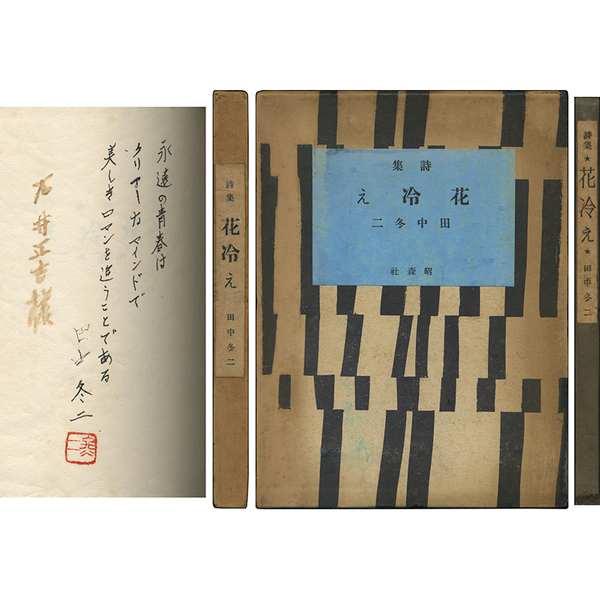 永遠の青春は
クリアーなマインドで
美しきロマンを追うことである
田中冬二
石井正吉様
詩集
花冷え
田中冬二
詩集
花冷え
田中冬二
昭森社
詩集★花冷え★田中冬二